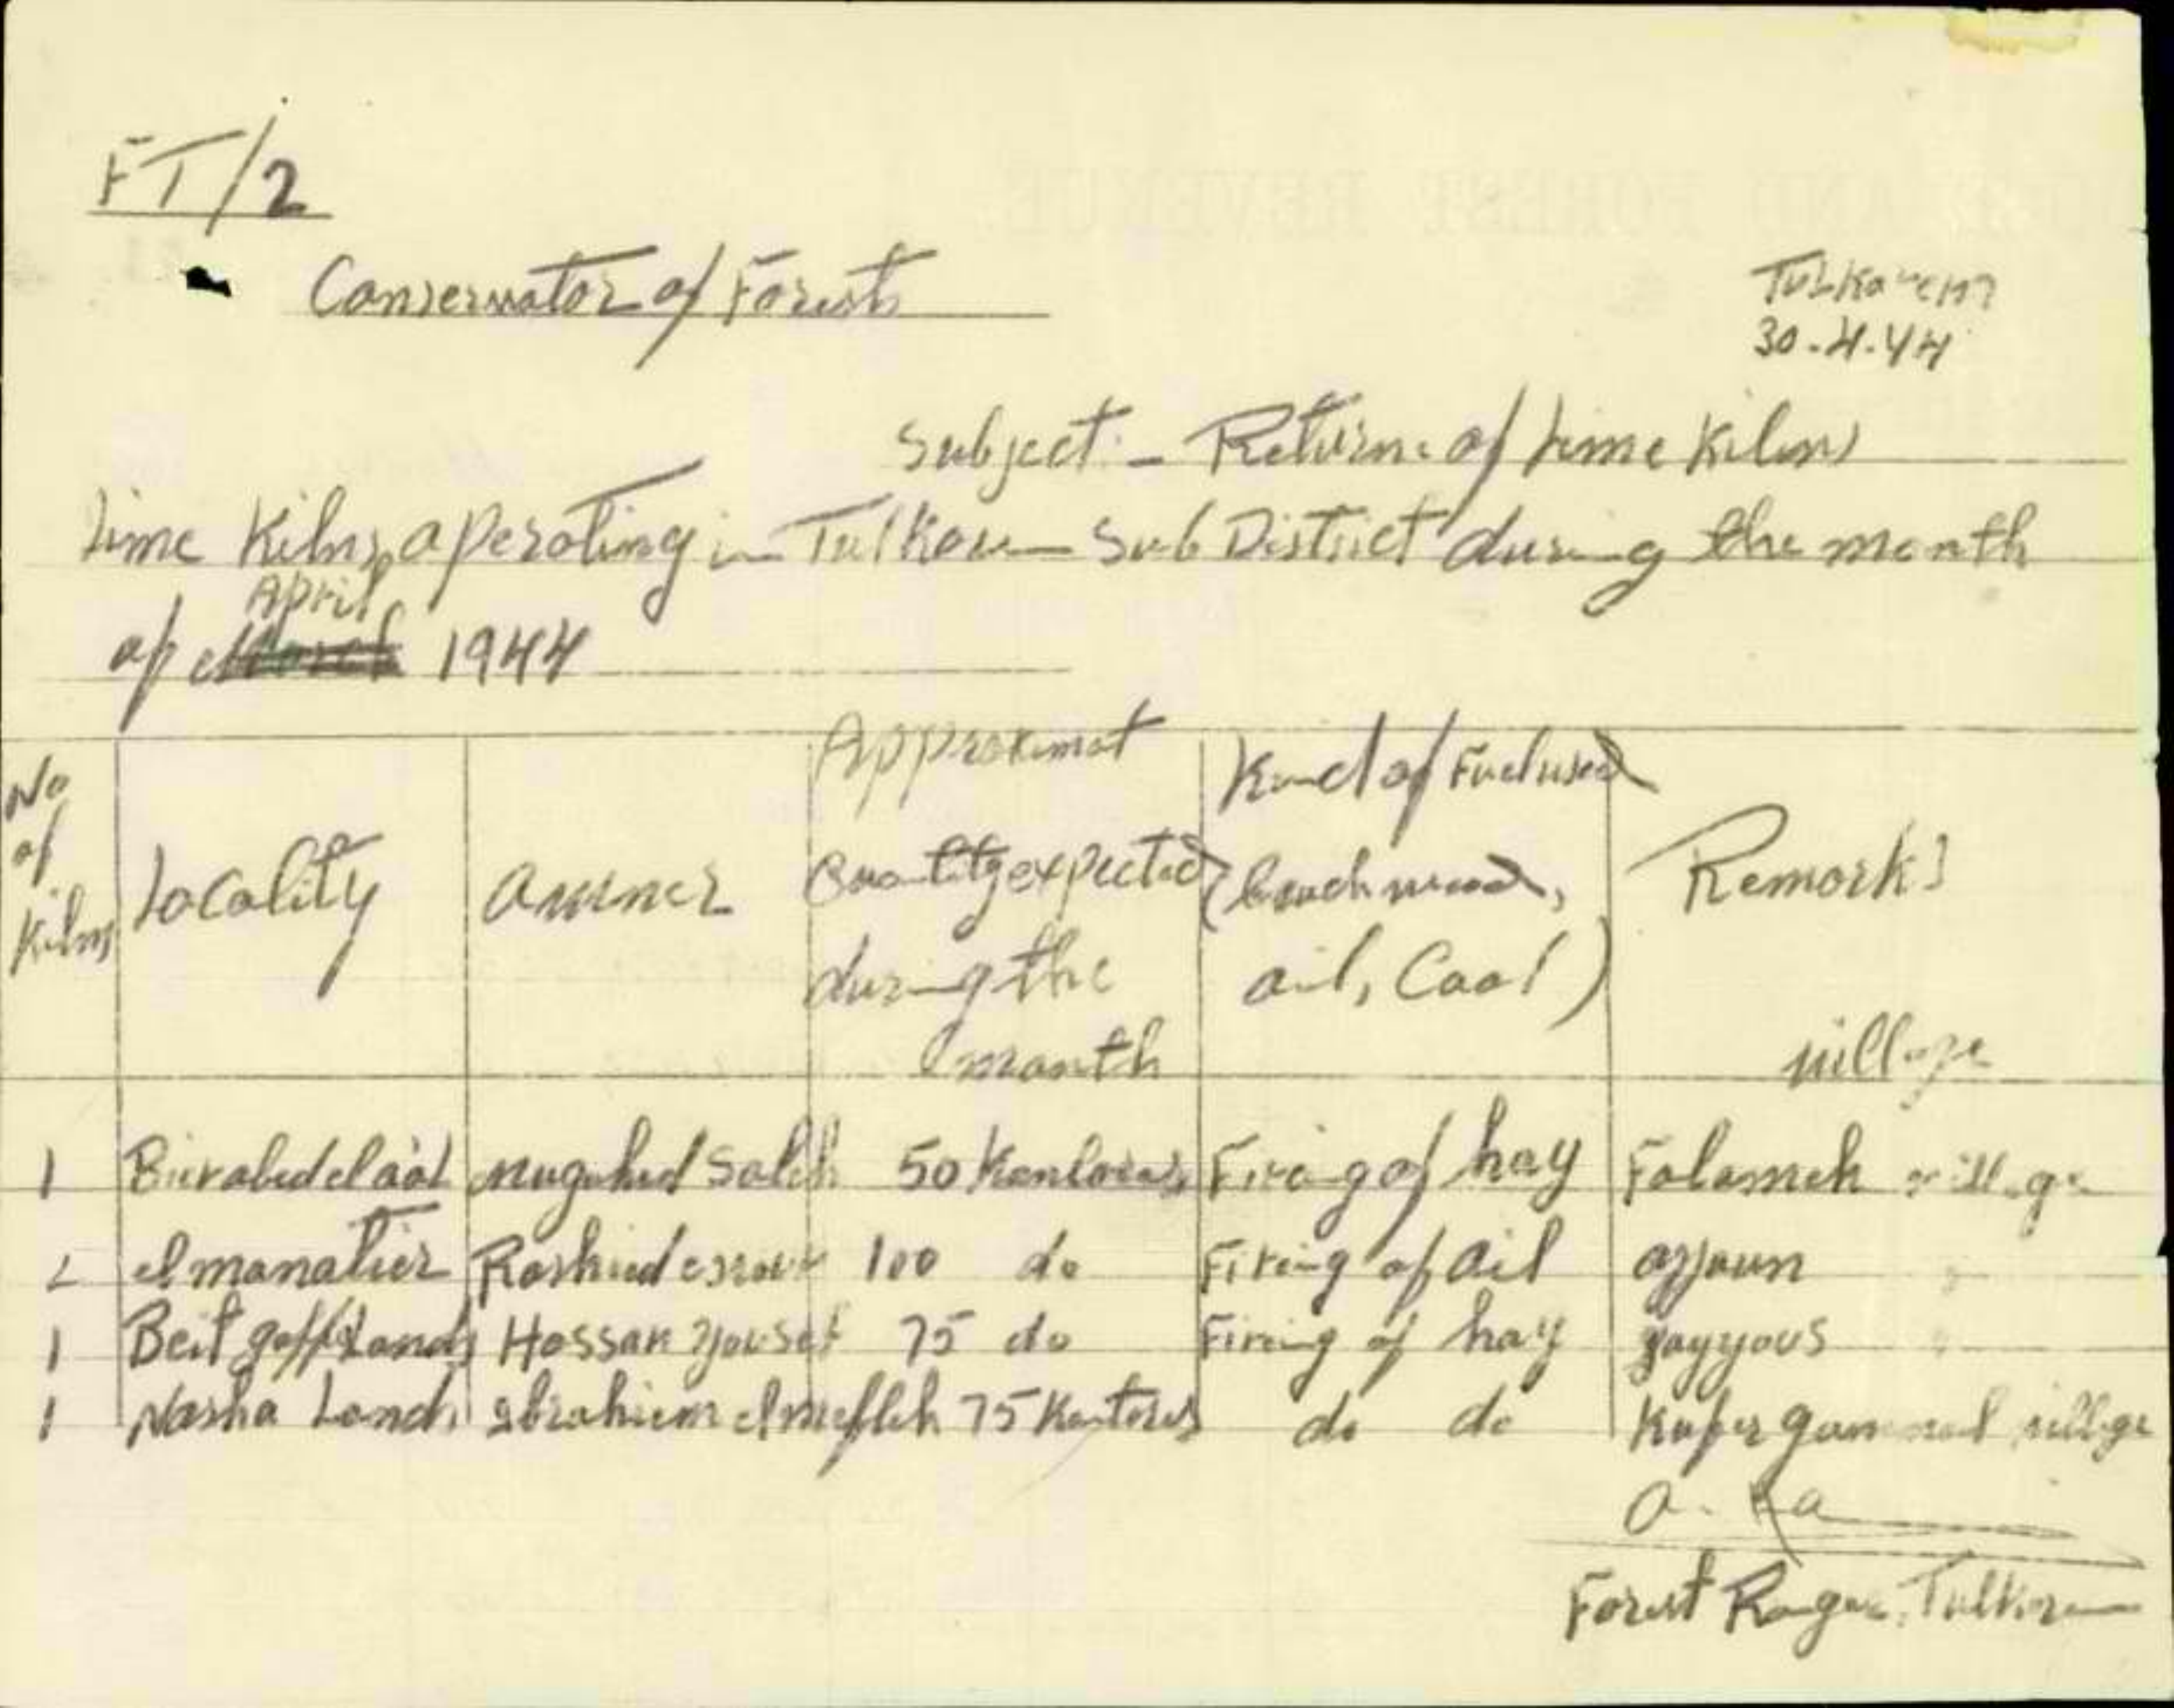 FT/2
Conservator of Forests
Tulkarem
30.4.44
Subject:- Return of Lime Kilns
Lime Kilns operating in Tulkarem Sub District during the month
of March April 1944
No of Kilns
Locality
Owner
Approximat Quantity expected during the month
Kind of Fuel used (brushwood, oil, Coal)
Remarks
village
1 Bir abed el aal mugahed Saleh 50 Kantars Firing of hay Falameh village
2 el manatier Rashied 100 do Firing of oil azzoun "
1 Beit Lands Hassan yousef 75 do Firing of hay gayyous "
1 Nasha Lands Ibrahiem el mefleh 75 Kantars do do Kufer gammal village
Forest Ranger, Tulkarem